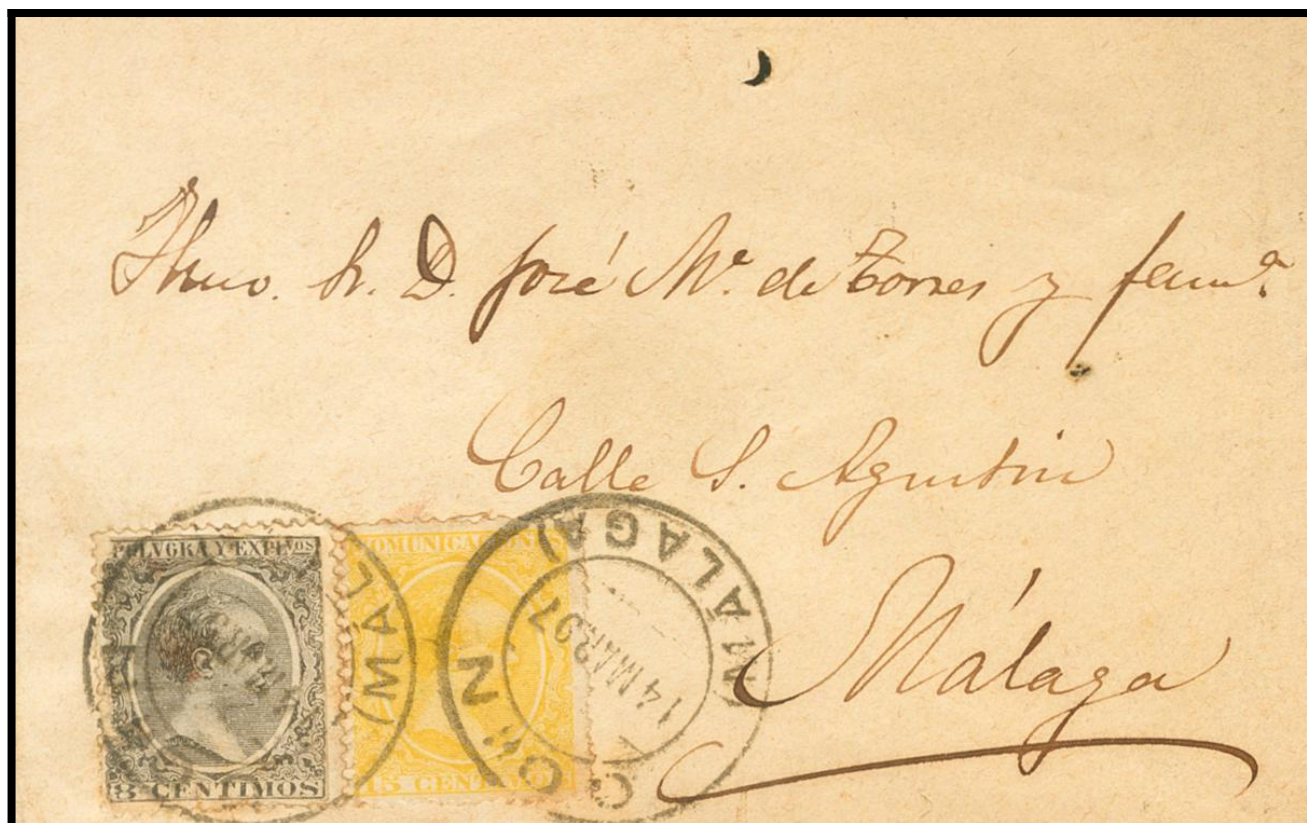 Ilmo. Sr. D. José Mª. de Torres y
Calle S. Agustin
Málaga
PELUQRA Y EXPIVOS
8 CENTIMOS
COMUNICACIONES
15 CENTIMOS
(MAL
(MALAGA)
14 MAR 97